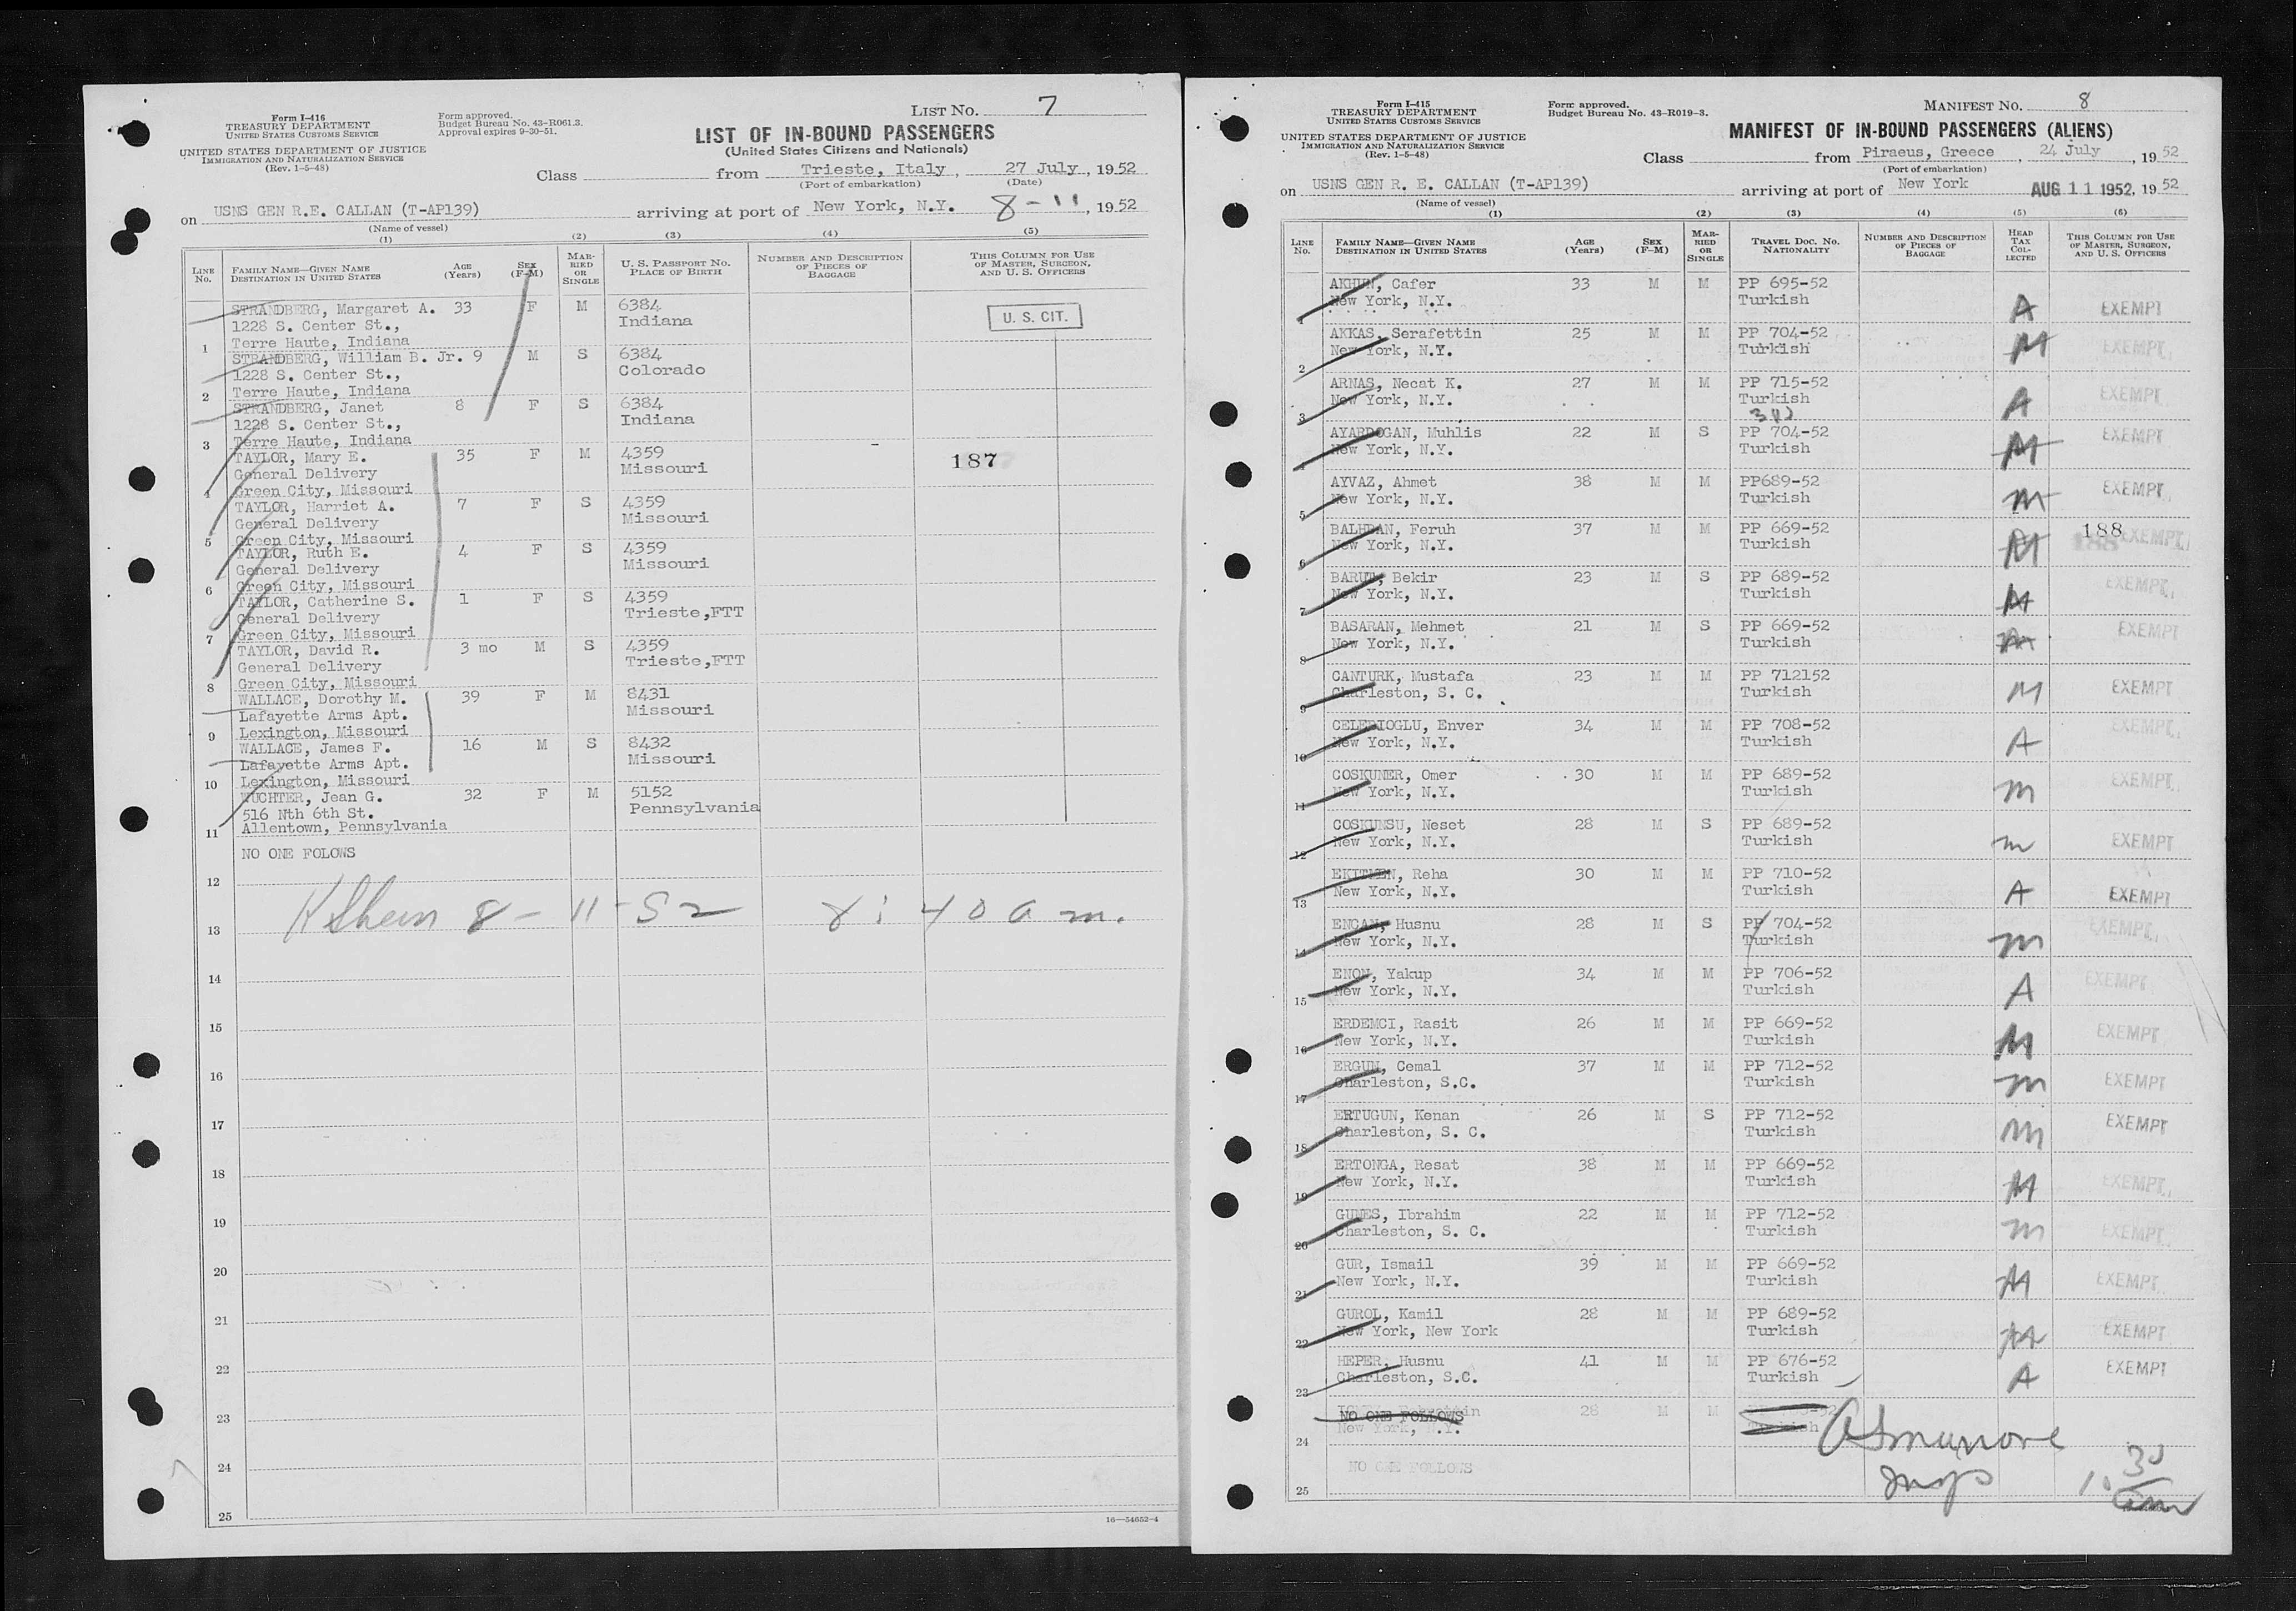 LIST NO. 7
Form I-416
TREASURY DEPARTMENT
UNITED STATES CUSTOMS SERVICE
UNITED STATES DEPARTMENT OF JUSTICE
IMMIGRATION AND NATURALIZATION SERVICE
(Rev. 1-5-48)
Form approved.
Budget Bureau No. 43-R061.3.
Approval expires 9-30-51.
LIST OF IN-BOUND PASSENGERS
(United States Citizens and Nationals)
Class from Trieste, Italy, 27 July, 1952
(Port of embarkation) (Date)
on USNS GEN R.E. CALLAN (T-AP139) arriving at port of New York, N.Y. 8-11, 1952
(Name of vessel)
(1) (2) (3) (4) (5)
LINE NO. FAMILY NAME—GIVEN NAME DESTINATION IN UNITED STATES AGE (Years) SEX (F-M) MARRIED OR SINGLE U. S. PASSPORT NO. PLACE OF BIRTH NUMBER AND DESCRIPTION OF PIECES OF BAGGAGE THIS COLUMN FOR USE OF MASTER, SURGEON, AND U. S. OFFICERS
STRANDBERG, Margaret A. 33 F M 6384 U. S. CIT.
1228 S. Center St., Indiana
1 Terre Haute, Indiana
STRANDBERG, William B. Jr. 9 M S 6384
1228 S. Center St., Colorado
2 Terre Haute, Indiana
STRANDBERG, Janet 8 F S 6384
1228 S. Center St., Indiana
3 Terre Haute, Indiana
TAYLOR, Mary E. 35 F M 4359 187
General Delivery Missouri
4 Green City, Missouri
TAYLOR, Harriet A. 7 F S 4359
General Delivery Missouri
5 Green City, Missouri
TAYLOR, Ruth E. 4 F S 4359
General Delivery Missouri
6 Green City, Missouri
TAYLOR, Catherine S. 1 F S 4359
General Delivery Trieste,FTT
7 Green City, Missouri
TAYLOR, David R. 3 mo M S 4359
General Delivery Trieste,FTT
8 Green City, Missouri
WALLACE, Dorothy M. 39 F M 8431
Lafayette Arms Apt. Missouri
9 Lexington, Missouri
WALLACE, James F. 16 M S 8432
Lafayette Arms Apt. Missouri
10 Lexington, Missouri
WUCHTER, Jean G. 32 F M 5152
516 Nth 6th St. Pennsylvania
11 Allentown, Pennsylvania
NO ONE FOLOWS
12
8-11-52 8:40 a m.
13
14
15
16
17
18
19
20
21
22
23
24
25
16—54652-4
MANIFEST NO. 8
Form I-415
TREASURY DEPARTMENT
UNITED STATES CUSTOMS SERVICE
UNITED STATES DEPARTMENT OF JUSTICE
IMMIGRATION AND NATURALIZATION SERVICE
(Rev. 1-5-48)
Form approved.
Budget Bureau No. 43-R019-3.
MANIFEST OF IN-BOUND PASSENGERS (ALIENS)
Class from Piraeus, Greece, 24 July, 1952
(Port of embarkation)
on USNS GEN R. E. CALLAN (T-AP139) arriving at port of New York AUG 11 1952, 1952
(Name of vessel)
(1) (2) (3) (4) (5) (6)
LINE NO. FAMILY NAME—GIVEN NAME DESTINATION IN UNITED STATES AGE (Years) SEX (F-M) MARRIED OR SINGLE TRAVEL DOC. NO. NATIONALITY NUMBER AND DESCRIPTION OF PIECES OF BAGGAGE HEAD TAX COLLECTED THIS COLUMN FOR USE OF MASTER, SURGEON, AND U. S. OFFICERS
AKHUN, Cafer 33 M M PP 695-52
1 New York, N.Y. Turkish A EXEMPT
AKKAS, Serafettin 25 M M PP 704-52
2 New York, N.Y. Turkish M EXEMPT
ARNAS, Necat K. 27 M M PP 715-52
3 New York, N.Y. Turkish A EXEMPT
AYARDOGAN, Muhlis 22 M S PP 704-52
4 New York, N.Y. Turkish M EXEMPT
AYVAZ, Ahmet 38 M M PP689-52
5 New York, N.Y. Turkish M EXEMPT
BALHBAN, Feruh 37 M M PP 669-52 188
6 New York, N.Y. Turkish M EXEMPT
BARUT, Bekir 23 M S PP 689-52
7 New York, N.Y. Turkish M EXEMPT
BASARAN, Mehmet 21 M S PP 669-52
8 New York, N.Y. Turkish M EXEMPT
CANTURK, Mustafa 23 M M PP 712152
9 Charleston, S. C. Turkish M EXEMPT
CELEBIOGLU, Enver 34 M M PP 708-52
10 New York, N.Y. Turkish A EXEMPT
COSKUNER, Omer 30 M M PP 689-52
11 New York, N.Y. Turkish M EXEMPT
COSKUNSU, Neset 28 M S PP 689-52
12 New York, N.Y. Turkish M EXEMPT
EKITMEN, Reha 30 M M PP 710-52
13 New York, N.Y. Turkish A EXEMPT
ENGAN, Husnu 28 M S PP 704-52
14 New York, N.Y. Turkish M EXEMPT
ENON, Yakup 34 M M PP 706-52
15 New York, N.Y. Turkish A EXEMPT
ERDEMCI, Rasit 26 M M PP 669-52
16 New York, N.Y. Turkish M EXEMPT
ERGUN, Cemal 37 M M PP 712-52
17 Charleston, S.C. Turkish M EXEMPT
ERTUGUN, Kenan 26 M S PP 712-52
18 Charleston, S. C. Turkish M EXEMPT
ERTONGA, Resat 38 M M PP 669-52
19 New York, N.Y. Turkish M EXEMPT
GUNES, Ibrahim 22 M M PP 712-52
20 Charleston, S. C. Turkish M EXEMPT
GUR, Ismail 39 M M PP 669-52
21 New York, N.Y. Turkish M EXEMPT
GUROL, Kamil 28 M M PP 689-52
22 New York, New York Turkish M EXEMPT
HEPER, Husnu 41 M M PP 676-52
23 Charleston, S.C. Turkish A EXEMPT
NO ONE FOLLOWS 28 M M
24 New York, N.Y.
NO ONE FOLLOWS Insp 10 30 am
25